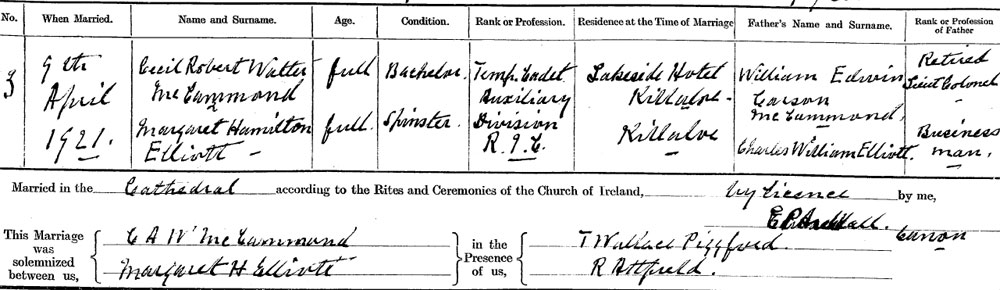 No. When Married. Name and Surname. Age. Condition. Rank or Profession. Residence at the Time of Marriage Father's Name and Surname. Rank or Profession of Father
3 9th April 1921. Cecil Robert Walter McCammond full Bachelor. Temp. Cadet Auxiliary Division R.I.C. Lakeside Hotel Killaloe - William Edwin Carson McCammond, Retired Lieut Colonel
Margaret Hamilton Elliott - full. Spinster. Killaloe Charles William Elliott. Business man.
Married in the Cathedral according to the Rites and Ceremonies of the Church of Ireland, by licence by me,
Canon
This Marriage was solemnized between us, C A W McCammond in the Presence of us, T Wallace
Margaret H Elliott R Attfield.